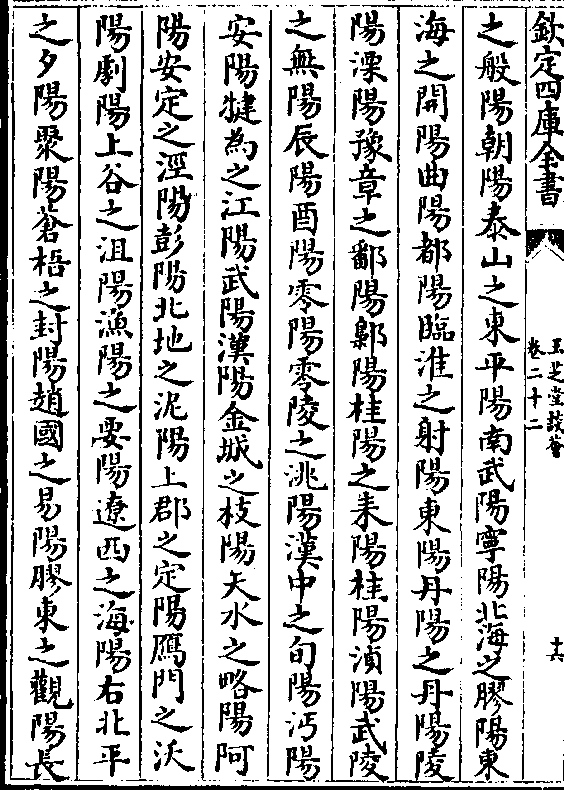 欽定四庫全書
玉芝堂談薈
卷二十二
十六
之般陽朝陽泰山之東平陽南武陽寧陽北海之膠陽東
海之開陽曲陽都陽臨淮之射陽東陽丹陽之丹陽陵
陽溧陽豫章之鄱陽鄡陽桂陽之耒陽桂陽湞陽武陵
之無陽辰陽酉陽零陽零陵之洮陽漢中之旬陽沔陽
安陽犍為之江陽武陽漢陽金城之枝陽天水之略陽阿
陽安定之涇陽彭陽北地之泥陽上郡之定陽鴈門之沃
陽劇陽上谷之沮陽漁陽之要陽遼西之海陽右北平
之夕陽聚陽蒼梧之封陽趙國之易陽膠東之觀陽長